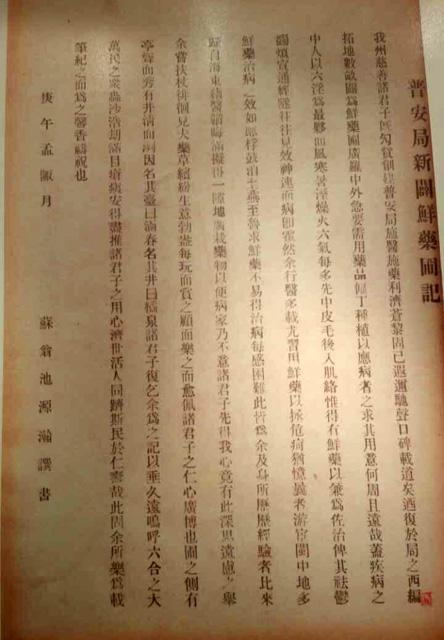 普安局新闢鮮藥圃記
我州慈善諸君子既匀貲創建普安局施醫施藥利濟蒼黎固已遐邇馳聲口碑載道矣迺復於局之西編
拓地數畝闢為鮮藥圃廣羅中外急要需用藥品僱丁種植以應病者之求其用意何周且遠哉蓋疾病之
中人以六淫為最夥而風寒暑溼燥火六氣每多先中皮毛後入肌絡惟得有鮮藥以兼為佐治俾其祛鬱
蠲煩宣通經隧往往見效神速而病即霍然余行醫多載尤習用鮮藥以拯危疴猶憶曩者游宦閩中地多
鮮藥治病之效如應桴鼓洎去燕至魯求鮮藥不易得治病每感困難此皆為余及身所歷歷經驗者比來
歸自海東藉醫韜晦滿擬得一隙地廣栽藥物以便病家乃不意諸君子先得我心竟有此深思遠慮之舉
余嘗扶杖徘徊見夫藥草繽紛生意勃盎每玩而賞之顧而樂之而愈佩諸君子之仁心廣博也圃之側有
亭聳而秀有井清而冽因名其臺曰論春名其井曰橘泉諸君子復乞余為之記以垂久遠嗚呼六合之大
萬民之衆蟲沙浩劫滿目瘡痍安得盡推諸君子之用心濟世活人同躋斯民於仁壽哉此固余所樂為載
筆紀之而為之馨香禱祝也
庚午孟陬月
蘇翁池源瀚譔書